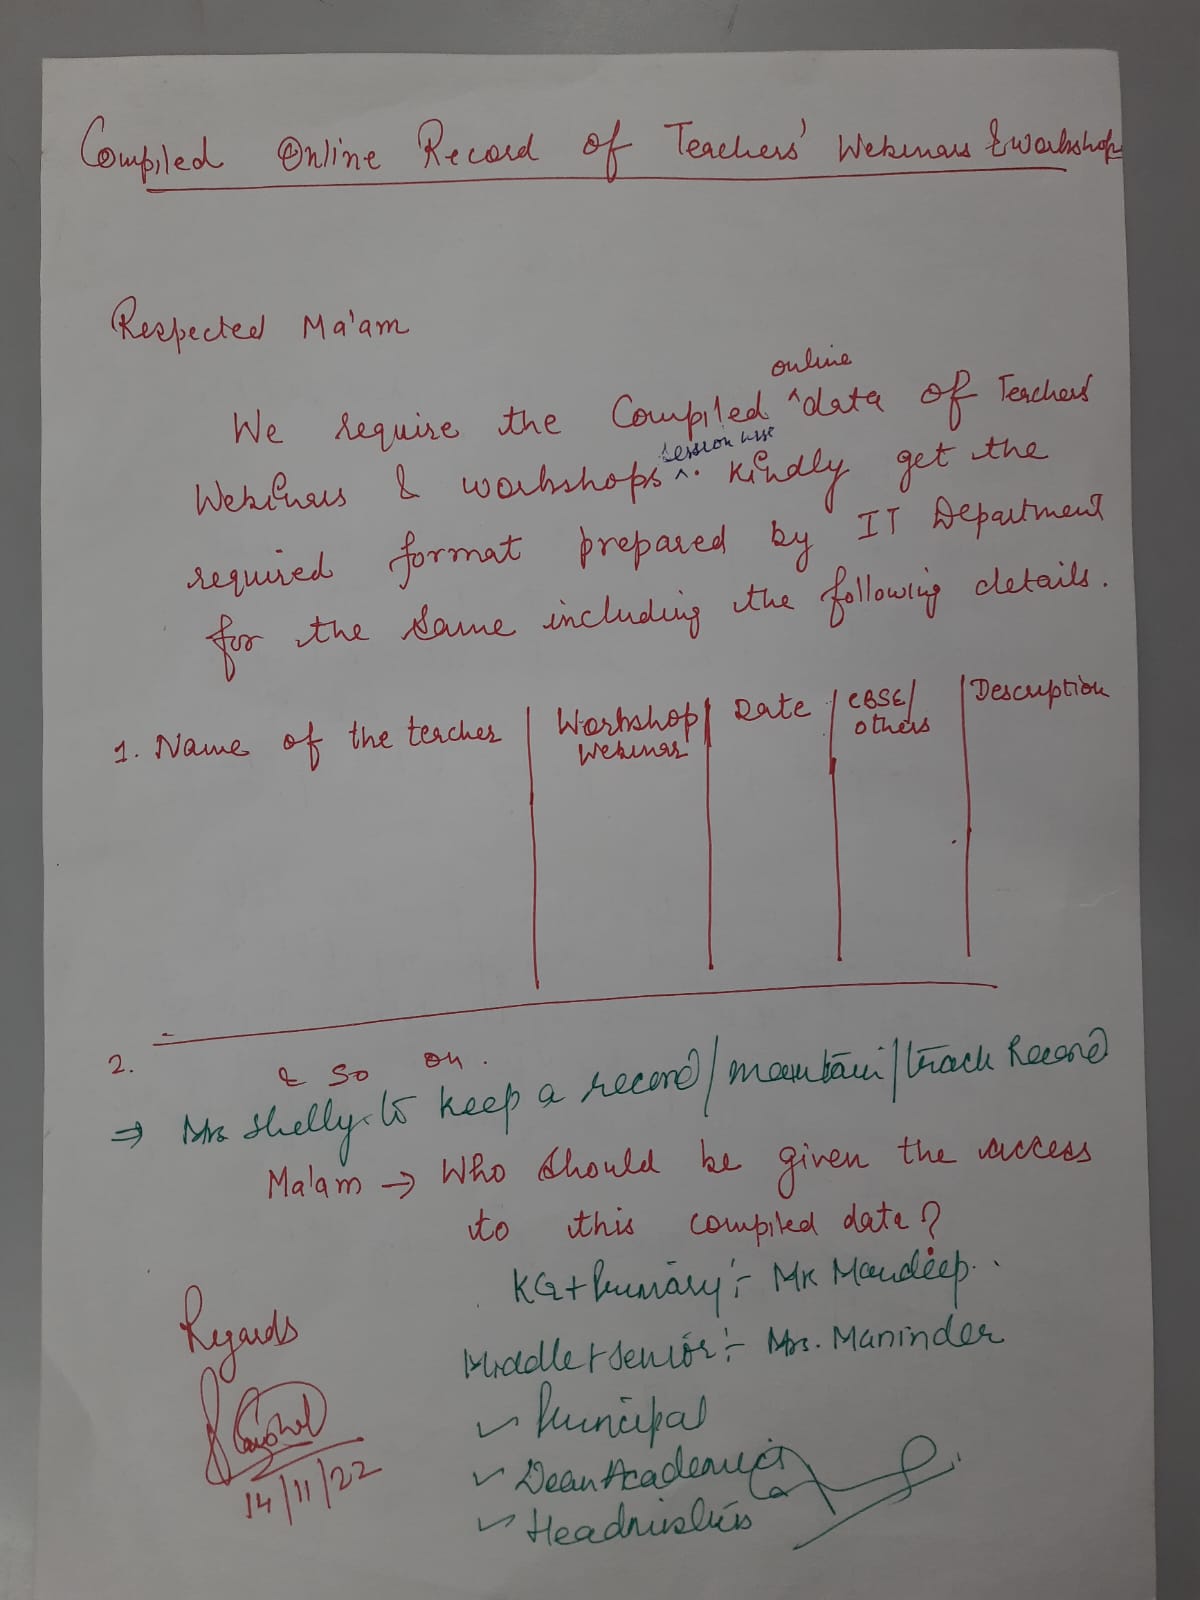 Compiled Online Record of Teachers' Webinars & workshop
Respected Ma'am
online
We require the Compiled ^ data of Teachers
session wise
Webinars & workshops ^. Kindly get the
required format prepared by IT Department
for the same including the following details.
1. Name of the teacher | Workshop Webinar | Date | CBSE/ others | Description
2.
& so on.
⇒ Mrs Shelly to keep a record/maintain/track Record
Ma'am → Who should be given the access
to this compiled data?
KG + Primary :- Mr Mandeep.
Middle + Senior :- Mrs. Maninder
Regards
✓ Principal
✓ Dean Academics
14/11/22
✓ Headmistress